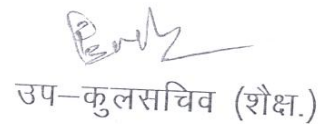 उप–कुलसचिव (शैक्ष.)